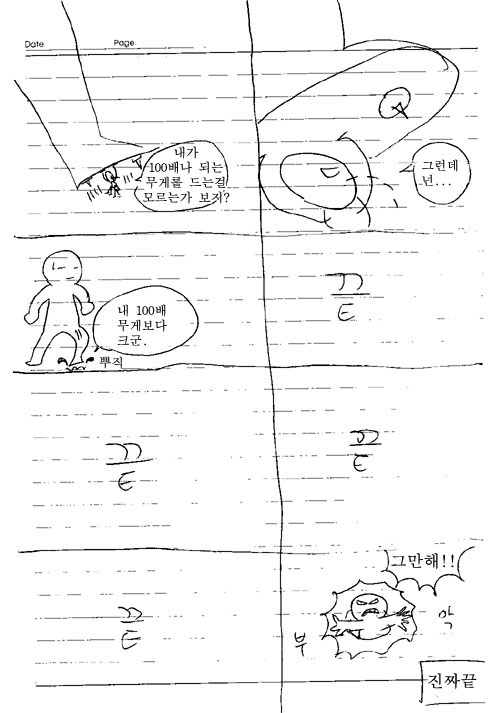 Date.
Page.
내가
100배나 되는
무게를 드는걸
모르는가 보지?
그런데
넌...
내 100배
무게보다
크군.
뿌직
끝
끝
끝
끝
그만해!!
부
악
진짜끝